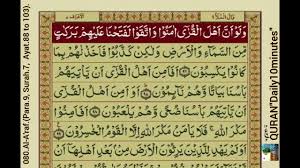 وَلَوْ اَنَّ اَهْلَ الْقُرٰۤى اٰمَنُوْا وَاتَّقَوْا لَفَتَحْنَا عَلَيْهِمْ بَرَكٰتٍ
مِّنَ السَّمَآءِ وَالْاَرْضِ وَلٰكِنْ كَذَّبُوْا فَاَخَذْنٰهُمْ بِمَا
كَانُوْا يَكْسِبُوْنَ اَفَاَمِنَ اَهْلُ الْقُرٰۤى اَنْ يَّاْتِيَهُمْ
بَاْسُنَا بَيَاتًا وَّهُمْ نَآئِمُوْنَ اَوَاَمِنَ اَهْلُ الْقُرٰۤى اَنْ
يَّاْتِيَهُمْ بَاْسُنَا ضُحًى وَّهُمْ يَلْعَبُوْنَ اَفَاَمِنُوْا
مَكْرَ اللّٰهِ فَلَا يَاْمَنُ مَكْرَ اللّٰهِ اِلَّا الْقَوْمُ
080.Al-A'raf.(Para.9, Surah.7, Ayat.88 to 103).
"QURAN"Daily10minutes"